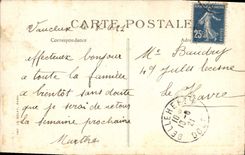 CARTE POSTALE
Correspondance
Vaucleux
affectueux bonjour
a toute la famille
a bientôt sans doute
que je serai de retour
la semaine prochaine
Marthe
Mr Baudry
47 Jules
Le Havre
25
BELLEHERBE
DOUBS